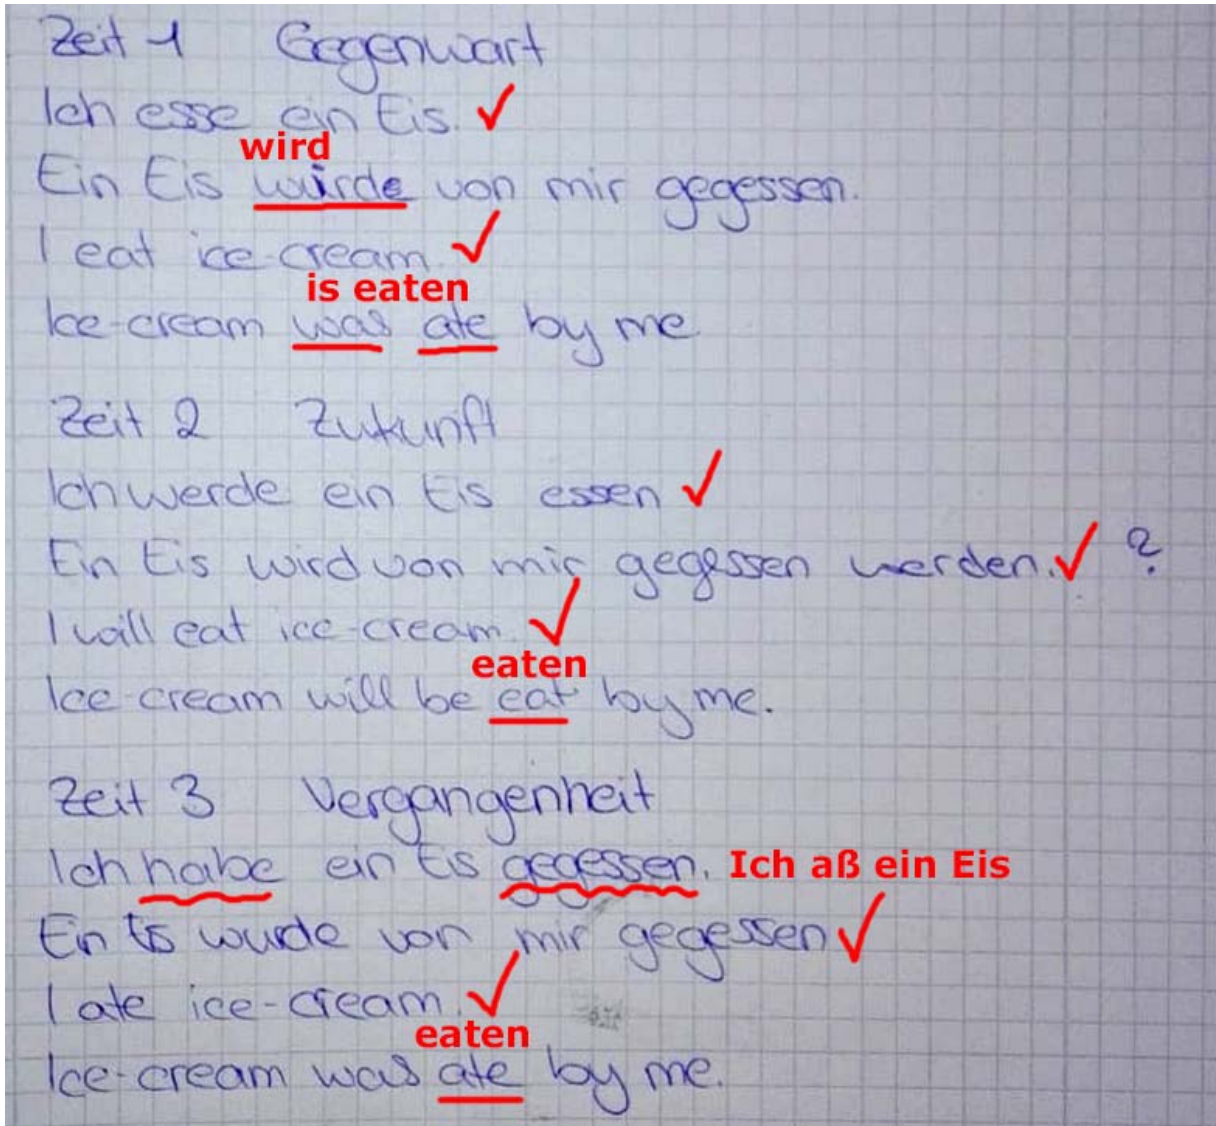 Zeit 1 Gegenwart
Ich esse ein Eis. ✓
wird
Ein Eis würde von mir gegessen.
I eat ice-cream. ✓
is eaten
Ice-cream was ate by me
Zeit 2 Zukunft
Ich werde ein Eis essen ✓
Ein Eis wird von mir gegessen werden. ✓ ?
I will eat ice-cream. ✓
eaten
Ice-cream will be eat by me.
Zeit 3 Vergangenheit
Ich habe ein Eis gegessen. Ich aß ein Eis
Ein Eis wurde von mir gegessen ✓
I ate ice-cream. ✓
eaten
Ice-cream was ate by me.